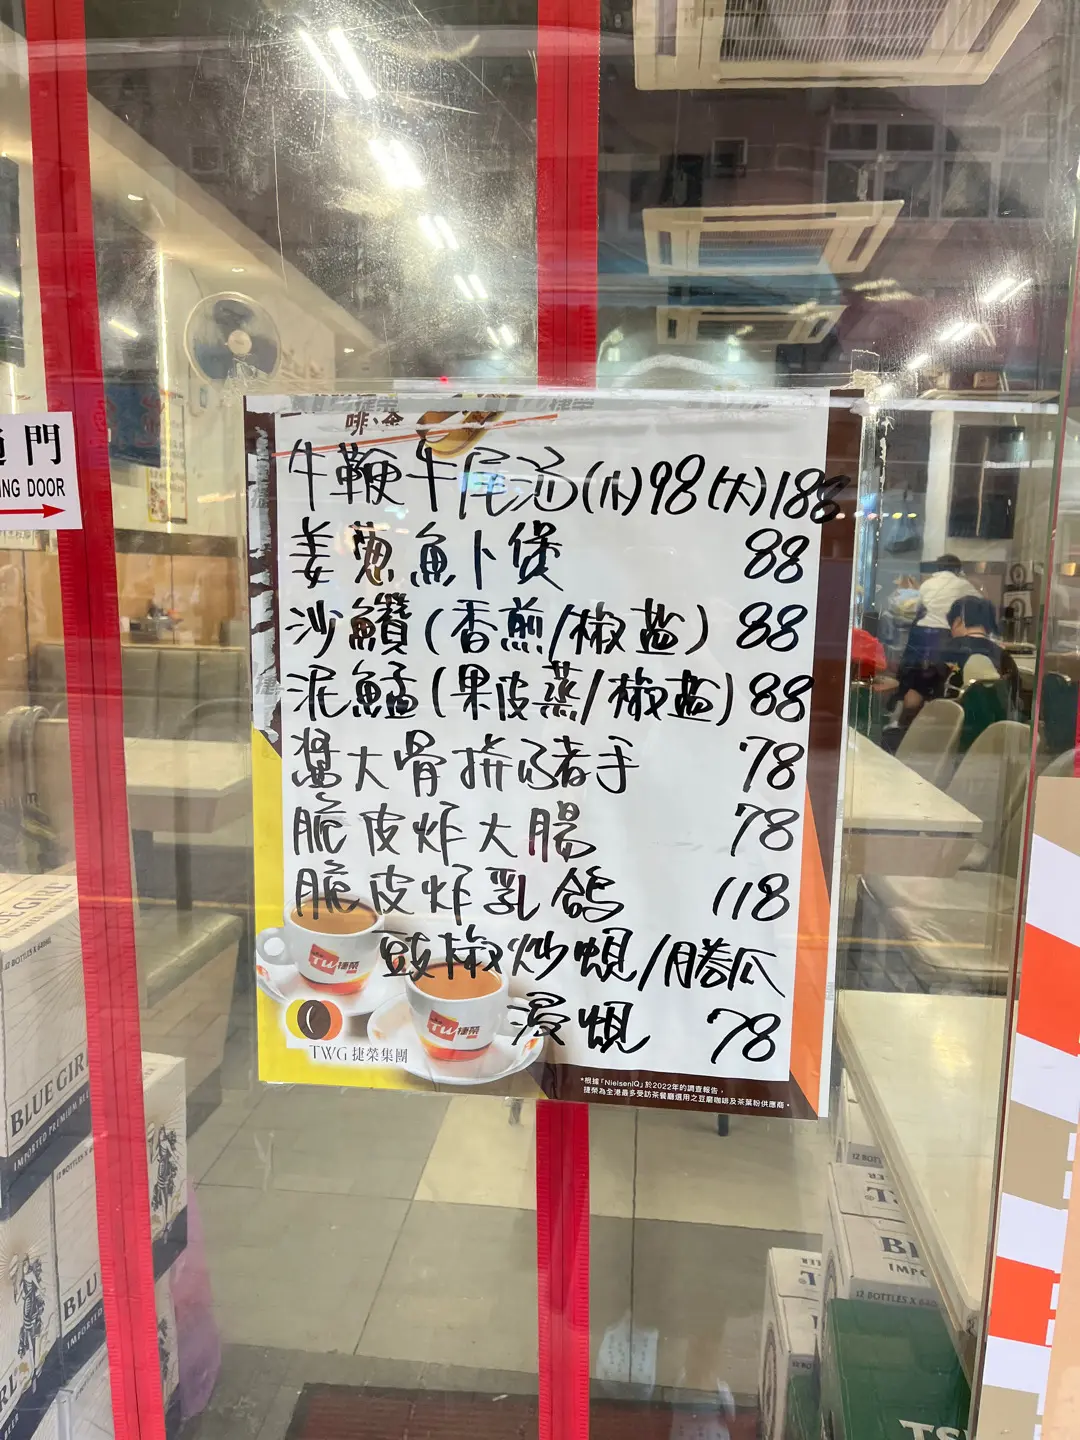 門
ING DOOR
啡·茶
牛鞭牛尾汤(小)98(大)188
姜葱魚卜煲 88
沙鑽(香煎/椒盐) 88
泥鯭(果皮蒸/椒盐) 88
醬大骨拼猪手 78
脆皮炸大腸 78
脆皮炸乳鴿 118
豉椒炒蜆/勝瓜
浸蜆 78
TW 捷榮
TW 捷榮
TWG 捷榮集團
*根據「NielsenIQ」於2022年的調查報告，
捷榮為全港最多受訪茶餐廳選用之豆磨咖啡及茶葉粉供應商。
BLUE GIRL
12 BOTTLES X 640ML
BLUE GIRL
IMPORTED PREMIUM BEER
12 BOTTLES X
BLU
IMPORTED
BL
IMPO
12 BOTTLES X 640
TS